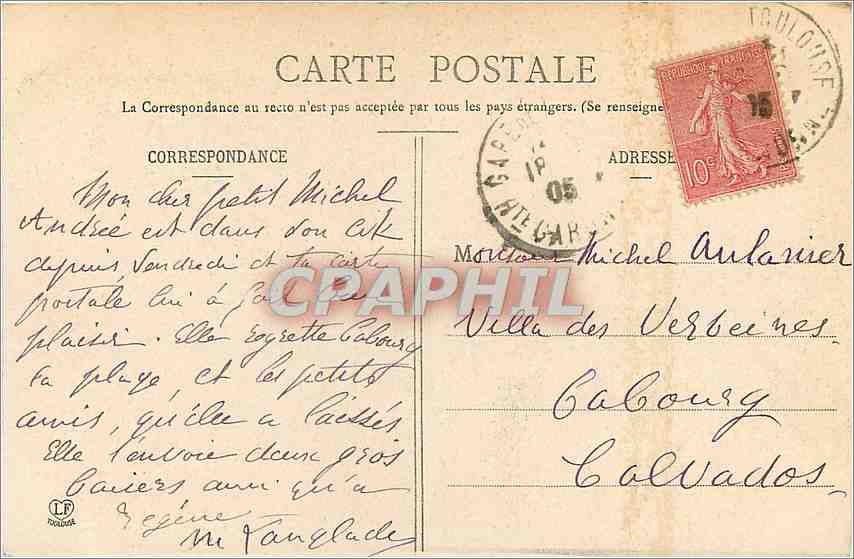 CARTE POSTALE
La Correspondance au recto n'est pas acceptée par tous les pays étrangers. (Se renseigne
CORRESPONDANCE
ADRESSE
RÉPUBLIQUE FRANÇAISE
10c
TOULOUSE
15
18
05
HTE GARONNE
Mon cher petit Michel
Andrée est dans son lit
depuis Vendredi et ta carte
postale lui a fait bien
plaisir. Elle regrette Cabourg
sa plage, et les petits
amis, qu'elle a laissés
Elle t'envoie deux gros
baisers ainsi qu'à
Regine
M Langlade
CPAPHIL
Monsieur Michel Aulanier
Villa des Verveines
Cabourg
Calvados
LF
TOULOUSE